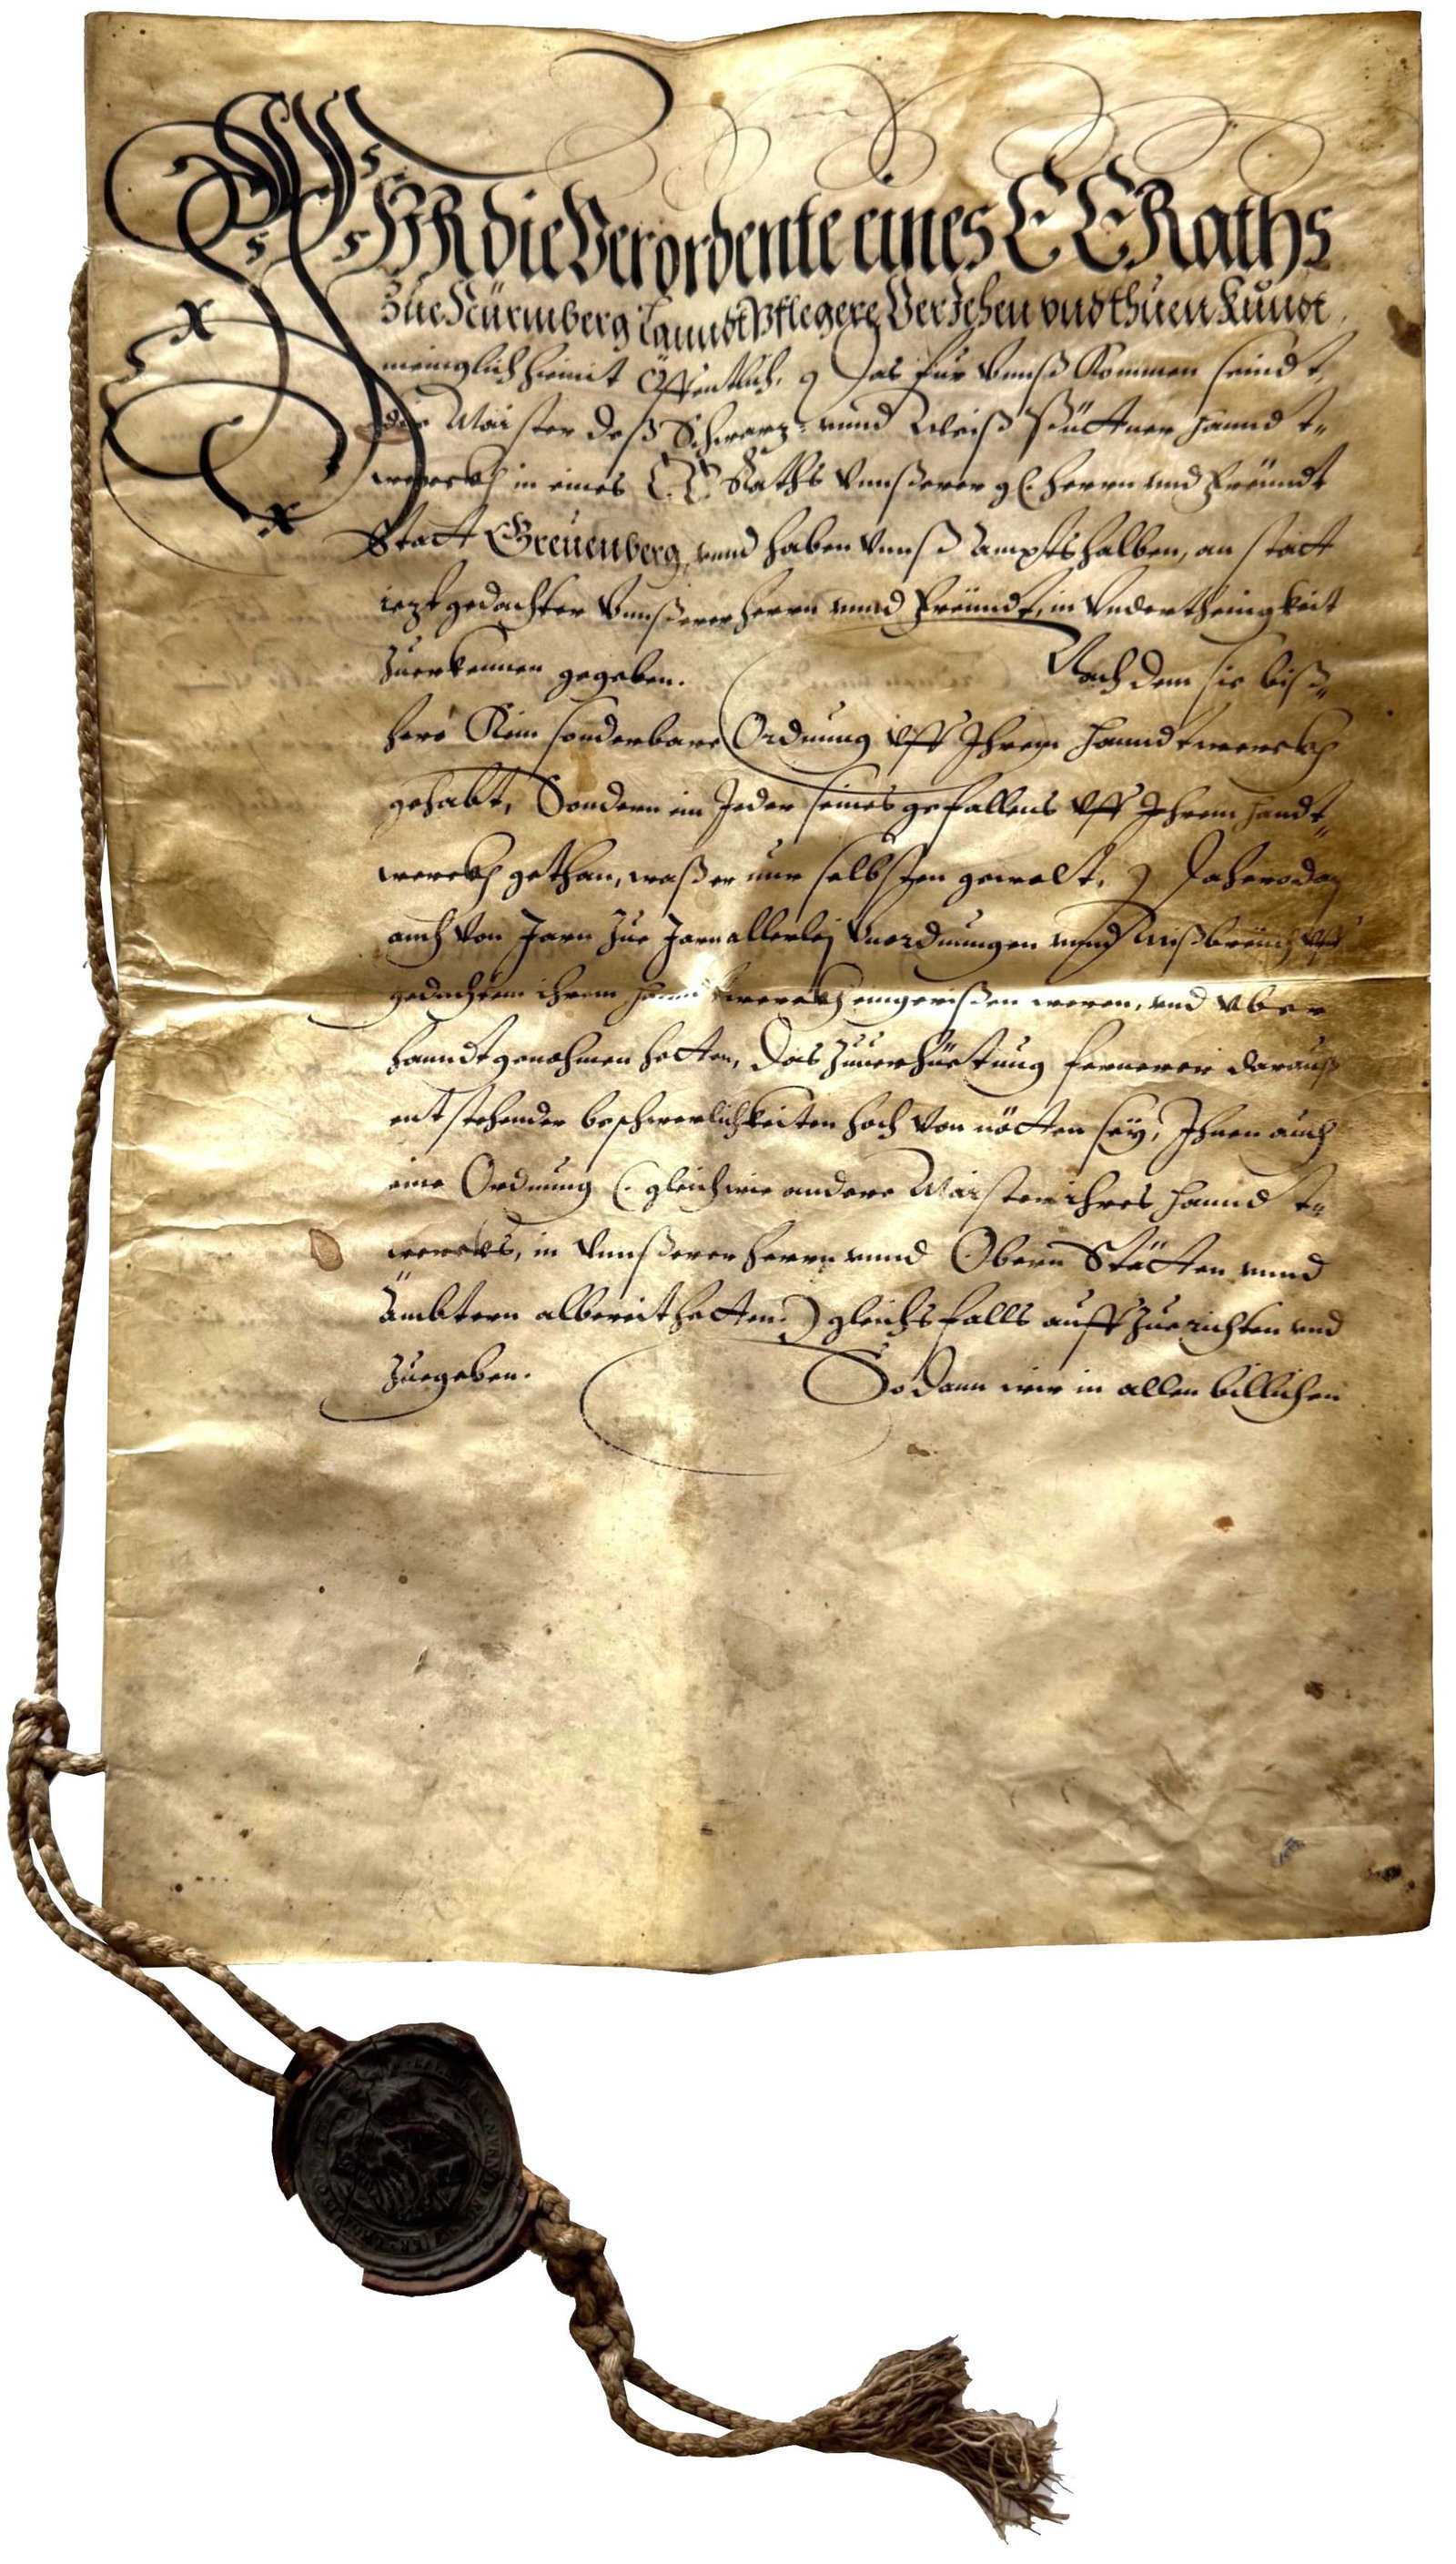 WIR die Verordente eines E E Raths
Zue Nürmberg Lanndt Pflegere, Verjehen vnd thuen Kundt
meniglich hiemit Öffentlich, Das für Vnnß Kommen seindt,
die Maister deß Schwarz: vnnd Weiß Püttner Hanndt=
werckhs in eines E E Raths Vnnßerer gl. Herrn vnd Freündt
Statt Greuenberg, vnnd haben Vnnß Ampts halben, an statt
iezt gedachter Vnnßerer Herrn vnnd Freündt, in Vnderthenigkeit
Zuerkennen gegeben. Nach dem sie biß=
hero Kein sonderbare Ordnung vff Ihrem Hanndtwerckh
gehabt, Sondern ein Jeder seines gefallens vff Ihrem Handt=
werckh gethan, waß er nur selbsten gewolt, Dahero dan
auch von Jarn Zue Jarn allerley Vnordnungen vnnd Mißbreüch vff
gedachtem ihrem Hanndtwerckh eingerißen weren, vnd vber
Hanndt genohmen hetten, Das Zuuerhüettung fernerer darauß
entstehender beschwerlichkeiten hoch von nötten sey, Ihnen auch
eine Ordnung (: gleich wie andere Maister ihres Hanndt=
wercks, in Vnnßerer Herrn vnnd Obern Stätten vnnd
Ämbtern albereit hetten :) gleichsfalls auff Zuerichten vnd
Zuegeben. So dann wir in allen billichen